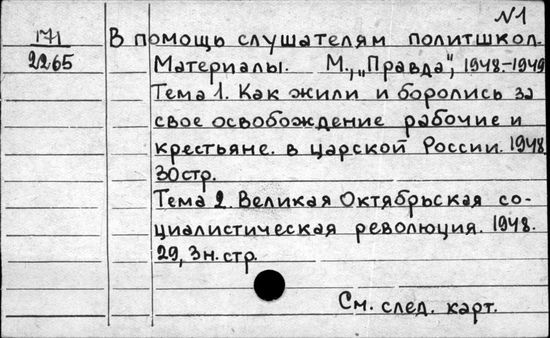 №1
171
2265
В помощь слушателям политшкол.
Материалы. М., „Правда", 1948.-1949
Тема 1. Как жили и боролись за
свое освобождение рабочие и
крестьяне. в царской России. 1948.
30стр.
Тема 2. Великая Октябрьская со-
циалистическая революция. 1948.
29, 3н. стр.
См. след. карт.